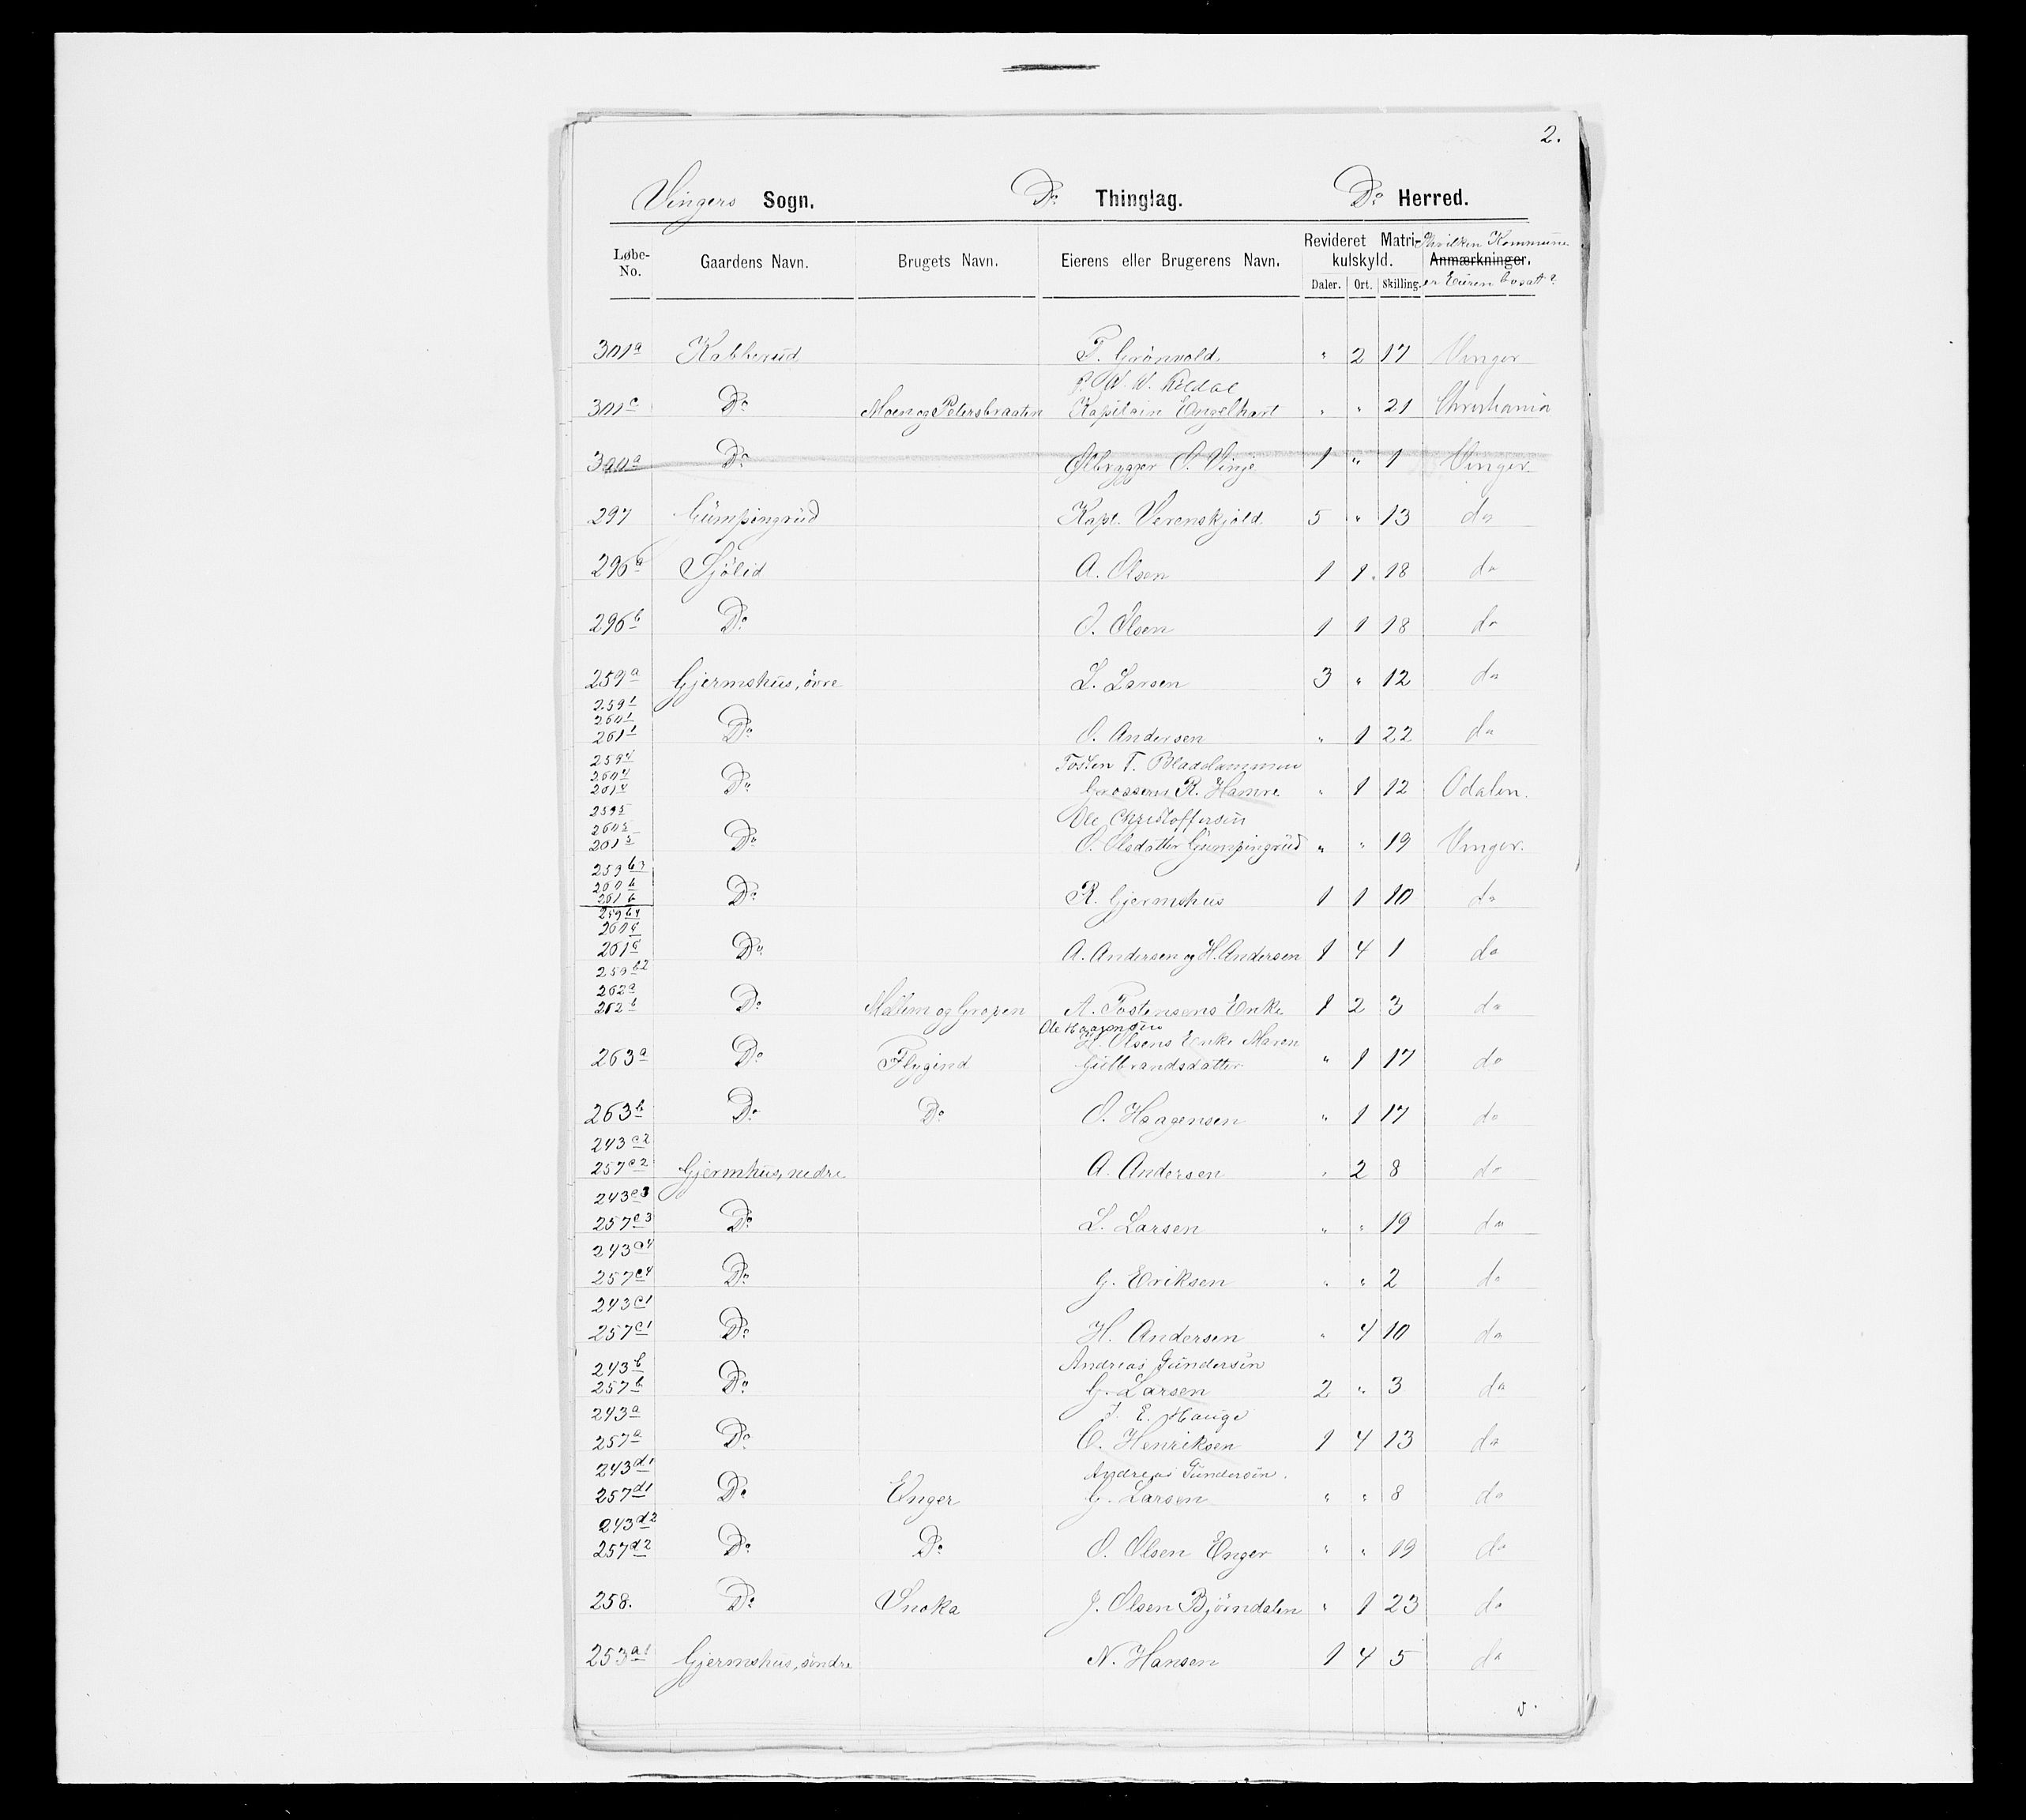 2.
Vingers Sogn. Do Thinglag. Do Herred.
Løbe-No. Gaardens Navn. Brugets Navn. Eierens eller Brugerens Navn. Revideret Matrikulskyld. Daler. Ort. Skilling. Anmærkninger. Hvilken Kommune er Eieren bosatt?
301a Kabberud T. Grönvold " 2 17 Vinger
P. W. W. Kildal
301c Do Moen og Petersbraaten Kapitain Engelhart " " 21 Christiania
300a Do Ølbrygger O. Vinje 1 " 1 Vinger
297 Gumpingrud Kapt. Verenskjold 5 " 13 do
296a Sjölid A. Olsen 1 1 18 do
296b Do O. Olsen 1 1 18 do
259a Gjermshus, övre L. Larsen 3 " 12 do
259 1
260 1
261 1 Do O. Andersen " 1 22 do
259 4 Tosten T. Bladdammen
260 4
261 4 Do Grosserer R. Hamre " 1 12 Odalen.
259 5 Ole Christoffersen
260 5
261 5 Do O. Olsdatter Gumpingrud " " 19 Vinger.
259 b3
260 b
261 b Do R. Gjermshus 1 1 10 do
259 b4
260 c
261 c Do A. Andersen og H. Andersen 1 4 1 do
259 b2
262 a
262 b Do Mellem og Gropen A. Tostensens Enke 1 2 3 do
Ole Haagensen
H. Olsens Enke Maren
263a Do Flygind Gulbrandsdatter " 1 17 do
263b Do Do O. Haagensen " 1 17 do
243 c2
257 c2 Gjermhus, nedre A. Andersen " 2 8 do
243 c3
257 c3 Do L. Larsen " " 19 do
243 c4
257 c4 Do G. Eriksen " " 2 do
243 c1
257 c1 Do H. Andersen " 4 10 do
243 b Andreas Gundersen
257 b Do G. Larsen 2 " 3 do
243 a J. E. Hauge
257 a Do O. Henriksen 1 4 13 do
243 d1 Andreas Gundersen.
257 d1 Do Enger G. Larsen " " 8 do
243 d2
257 d2 Do Do O. Olsen Enger " " 19 do
258. Do Snoka J. Olsen Björndalen " 1 23 do
253 a1 Gjermshus, söndre N. Hansen 1 4 5 do